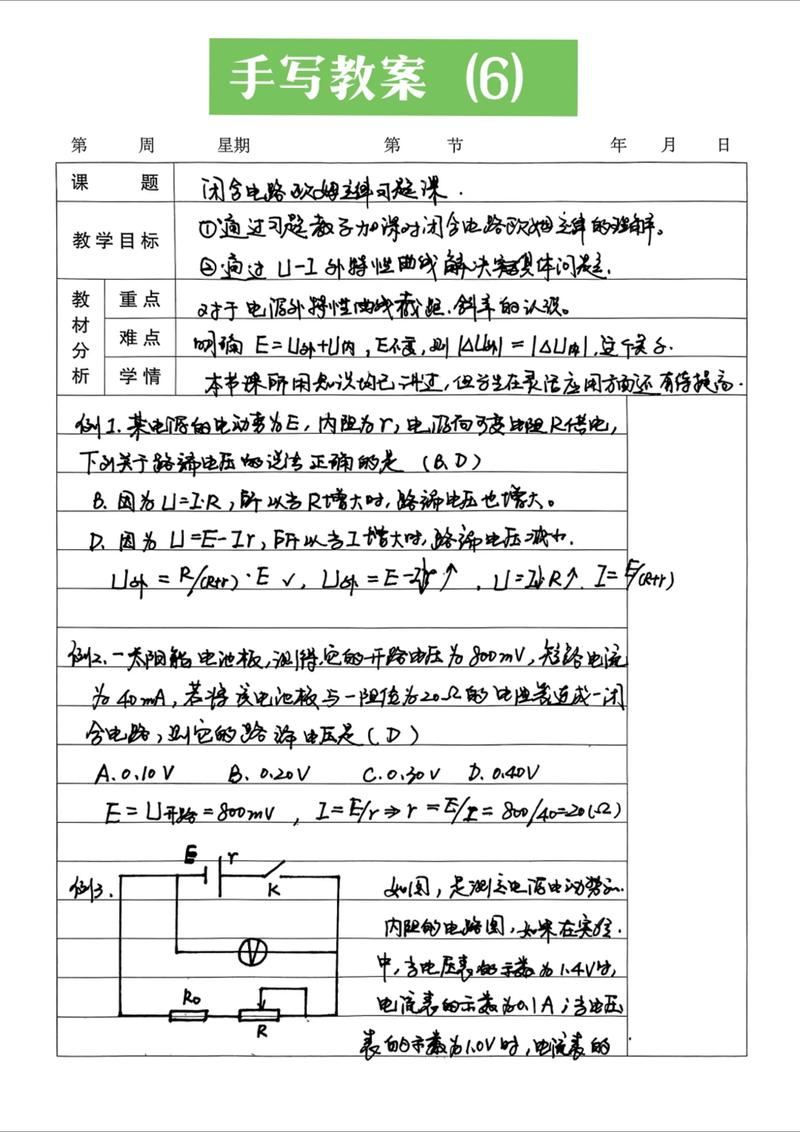 手写教案 (6)
第 周 星期 第 节 年 月 日
课 题 闭合电路欧姆定律习题课.
教学目标 ①通过习题教学加深对闭合电路欧姆定律的理解。
②通过 U-I 外特性曲线解决具体问题.
教材分析
重点 对于电源外特性曲线截距.斜率的认识。
难点 明确 E=U外+U内, E不变, 则 |ΔU外| = |ΔU内|, 这个关系.
学情 本节课所用知识均已讲过, 但学生在灵活应用方面还有待提高.
例1. 某电源的电动势为E, 内阻为r, 电源向可变电阻R供电,
下列关于路端电压的说法正确的是 (B.D)
B. 因为 U=I·R, 所以当R增大时, 路端电压也增大。
D. 因为 U=E-Ir, 所以当I增大时, 路端电压减小.
U外 = R/(R+r)·E ✓, U外 = E-I↓r↑, U=I↓·R↑. I=E/(R+r)
例2. 一太阳能电池板, 测得它的开路电压为800mV, 短路电流
为40mA, 若将该电池板与一阻值为20Ω的电阻器连成一闭
合电路, 则它的路端电压是 (D)
A. 0.10V B. 0.20V C. 0.30V D. 0.40V
E=U开路=800mV, I=E/r⇒r=E/I=800/40=20(Ω)
例3.
E r
K
V
R₀
R
如图, 是测定电源电动势和
内阻的电路图, 如果在实验.
中, 当电压表的示数为1.4V时,
电流表的示数为0.1A; 当电压
表的示数为1.0V时, 电流表的